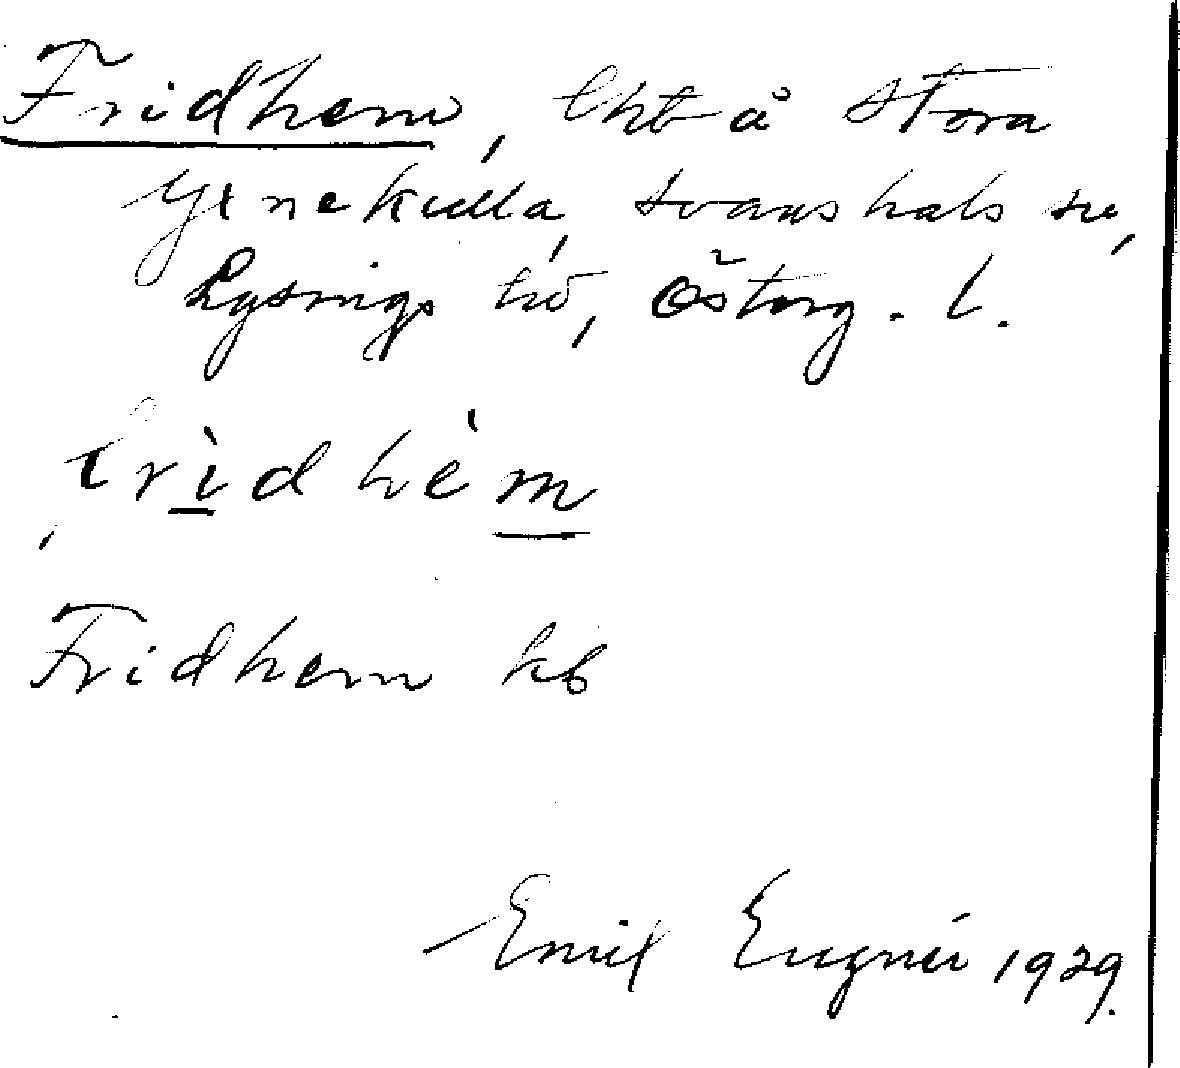 Fridhem, lht å Stora
Ysnekulla, Svanshals sn,
Lysings hd, Österg. l.
frìdhèm
Fridhem kb
Emil Eugnér 1929.